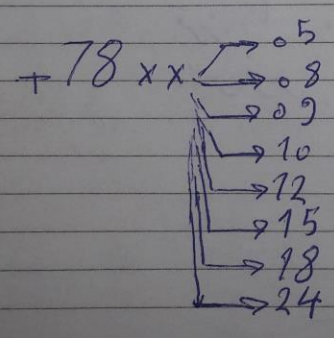 +78xx
05
08
09
10
12
15
18
24